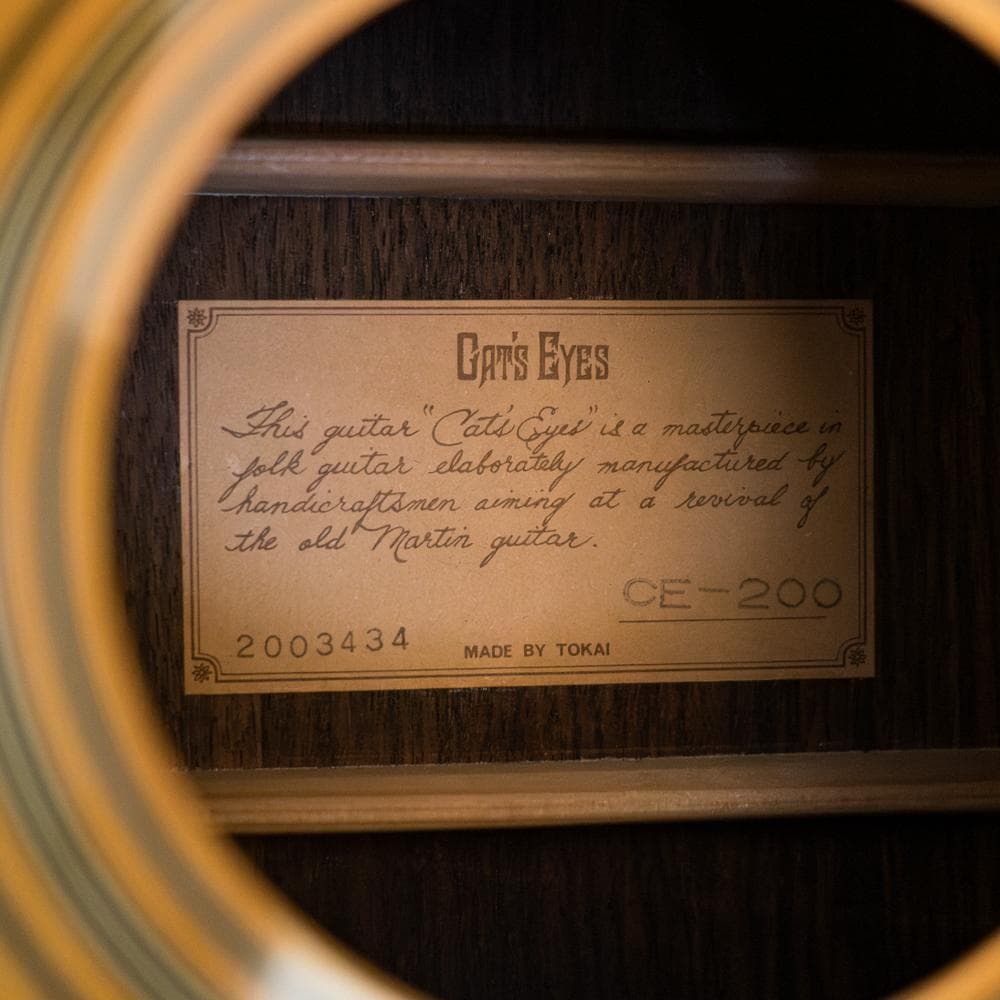 CAT'S EYES
This guitar "Cat's Eyes" is a masterpiece in
folk guitar elaborately manufactured by
handicraftsmen aiming at a revival of
the old Martin guitar.
CE-200
2003434
MADE BY TOKAI